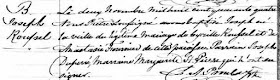 B
Joseph
Roussel
Le deux Novembre mil huit cent quarante quatre
Nous Prêtre soussigné avons baptisé Joseph né
la veille du légitime mariage de Cyrille Roussel et de
de cette paroisse Parrain Joseph
Dupuis, Marraine Marguerite St Pierre qui n'ont su
signer.